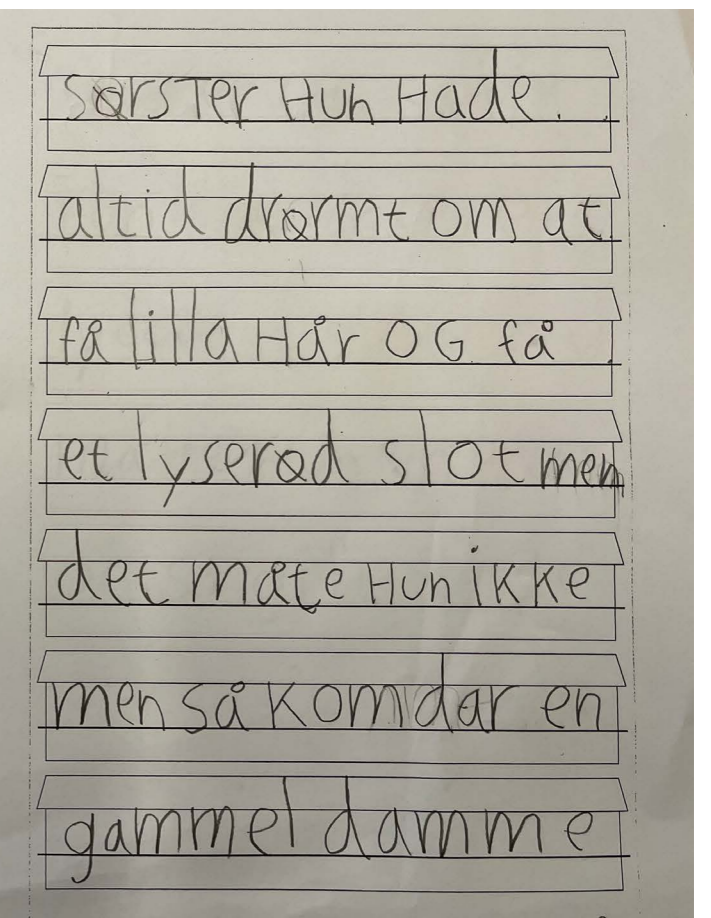 sørster Hun Hade.
altid drørmt om at
få lilla Hår OG få
et lyserød slot men
det måte Hun ikke
men så kom dar en
gammel damme